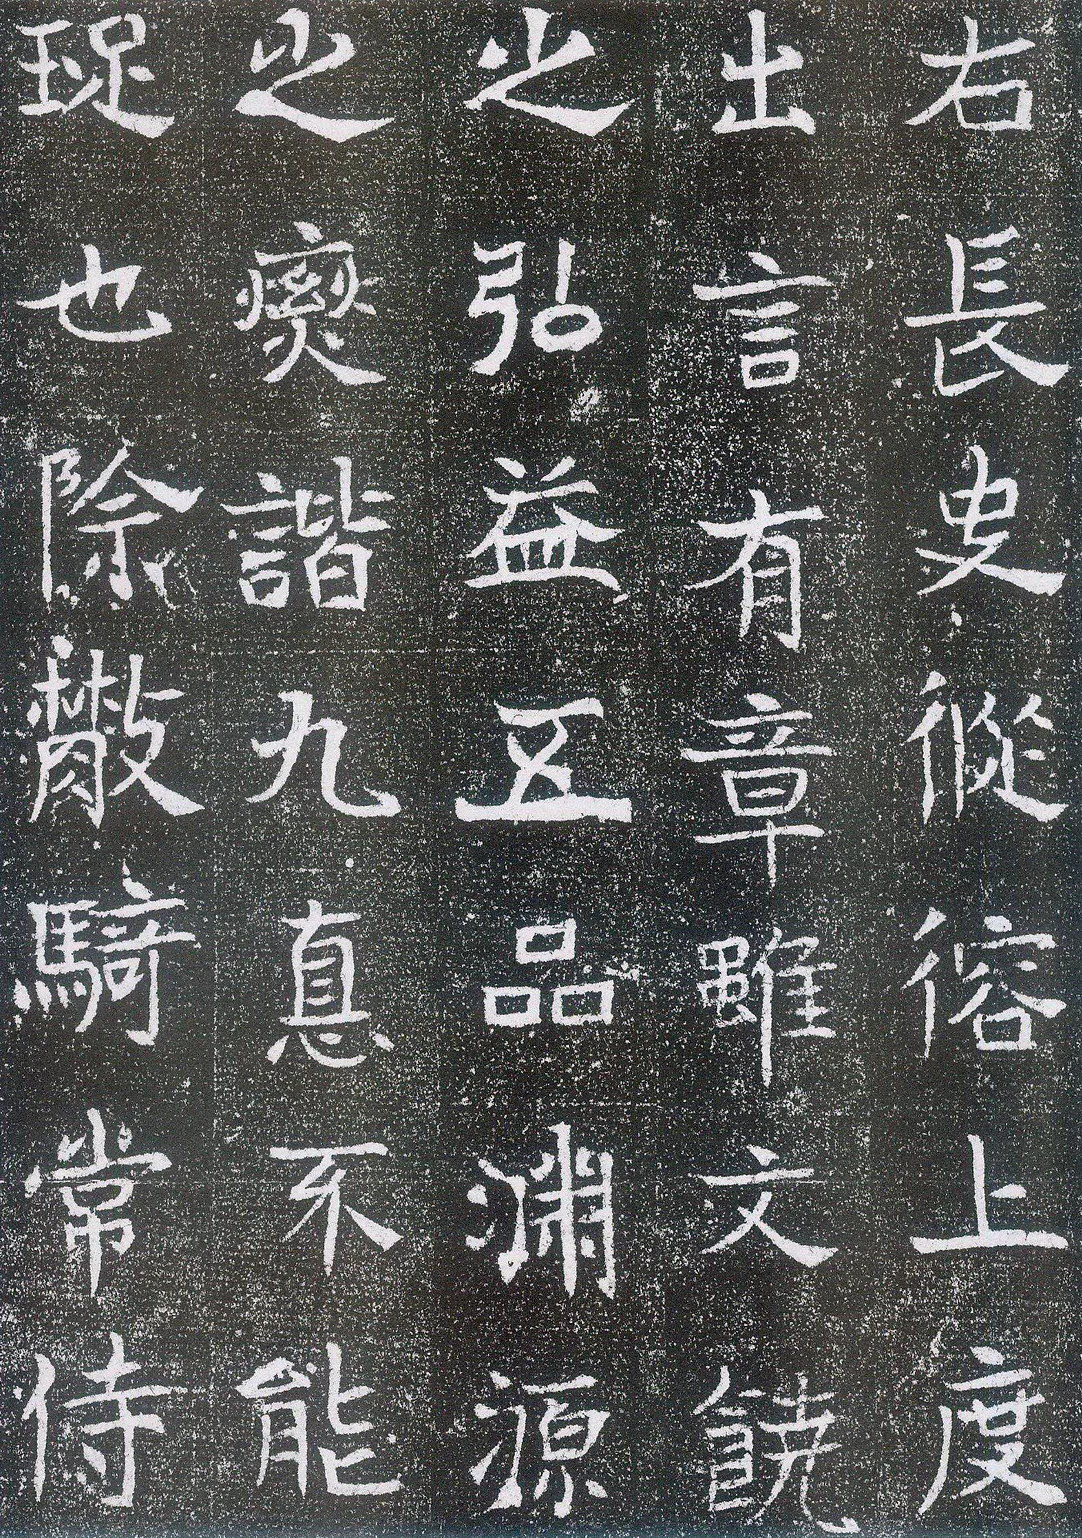 右長史從㣑上度
出言有章雖文饒
之弘益五品淵源
之燮諧九悳不能
珿也除散騎常侍